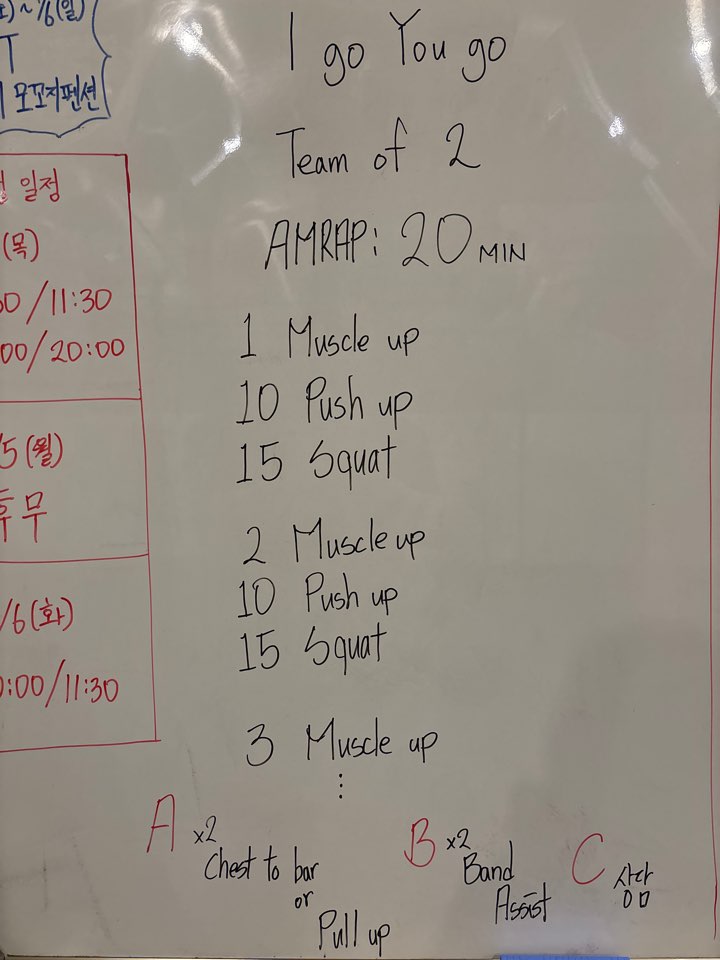 ~ 1/6(일)
T
모꼬지펜션
일정
(목)
/11:30
00/20:00
5(월)
휴무
/6(화)
:00/11:30
I go You go
Team of 2
AMRAP: 20 MIN
1 Muscle up
10 Push up
15 Squat
2 Muscle up
10 Push up
15 Squat
3 Muscle up
⋮
A x2
Chest to bar
or
Pull up
B x2
Band
Assist
C 상담